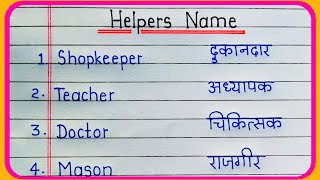 Helpers Name
1. Shopkeeper दुकानदार
2. Teacher अध्यापक
3. Doctor चिकित्सक
4. Mason राजगीर